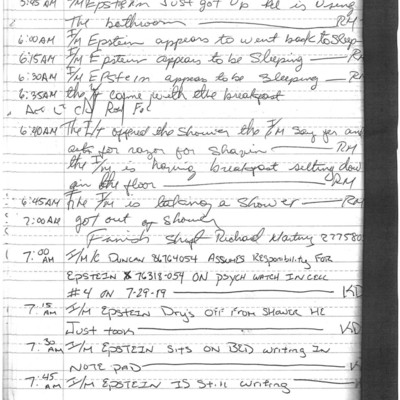 5:45AM I/M Epstein Just got up He is using
The bathroom RM
6:00AM I/M Epstein appears to went back to sleep
6:15AM I/M Epstein appears to be Sleeping RM
6:30AM I/M Epstein appears to be Sleeping RM
6:35AM the come with the breakfast
Act LT
6:40AM The LT offered the shower the I/M say yes and
for razor for Shavin RM
the I/M is having breakfast sitting down
on the floor RM
6:45AM The I/M is taking a Shower RM
7:00AM got out of shower
Finish Shift Richard 277580
7:00 AM I/M K DUNCAN 86764054 ASSUMES RESPONSIBILITY FOR
EPSTEIN 76318-054 ON PSYCH WATCH IN CELL
#4 ON 7-29-19 KD
7:15 AM I/M EPSTEIN DRY'S OFF FROM SHOWER HE
JUST TOOK KD
7:30 AM I/M EPSTEIN SITS ON BED WRITING IN
NOTE PAD KD
7:45 AM I/M EPSTEIN IS STILL WRITING